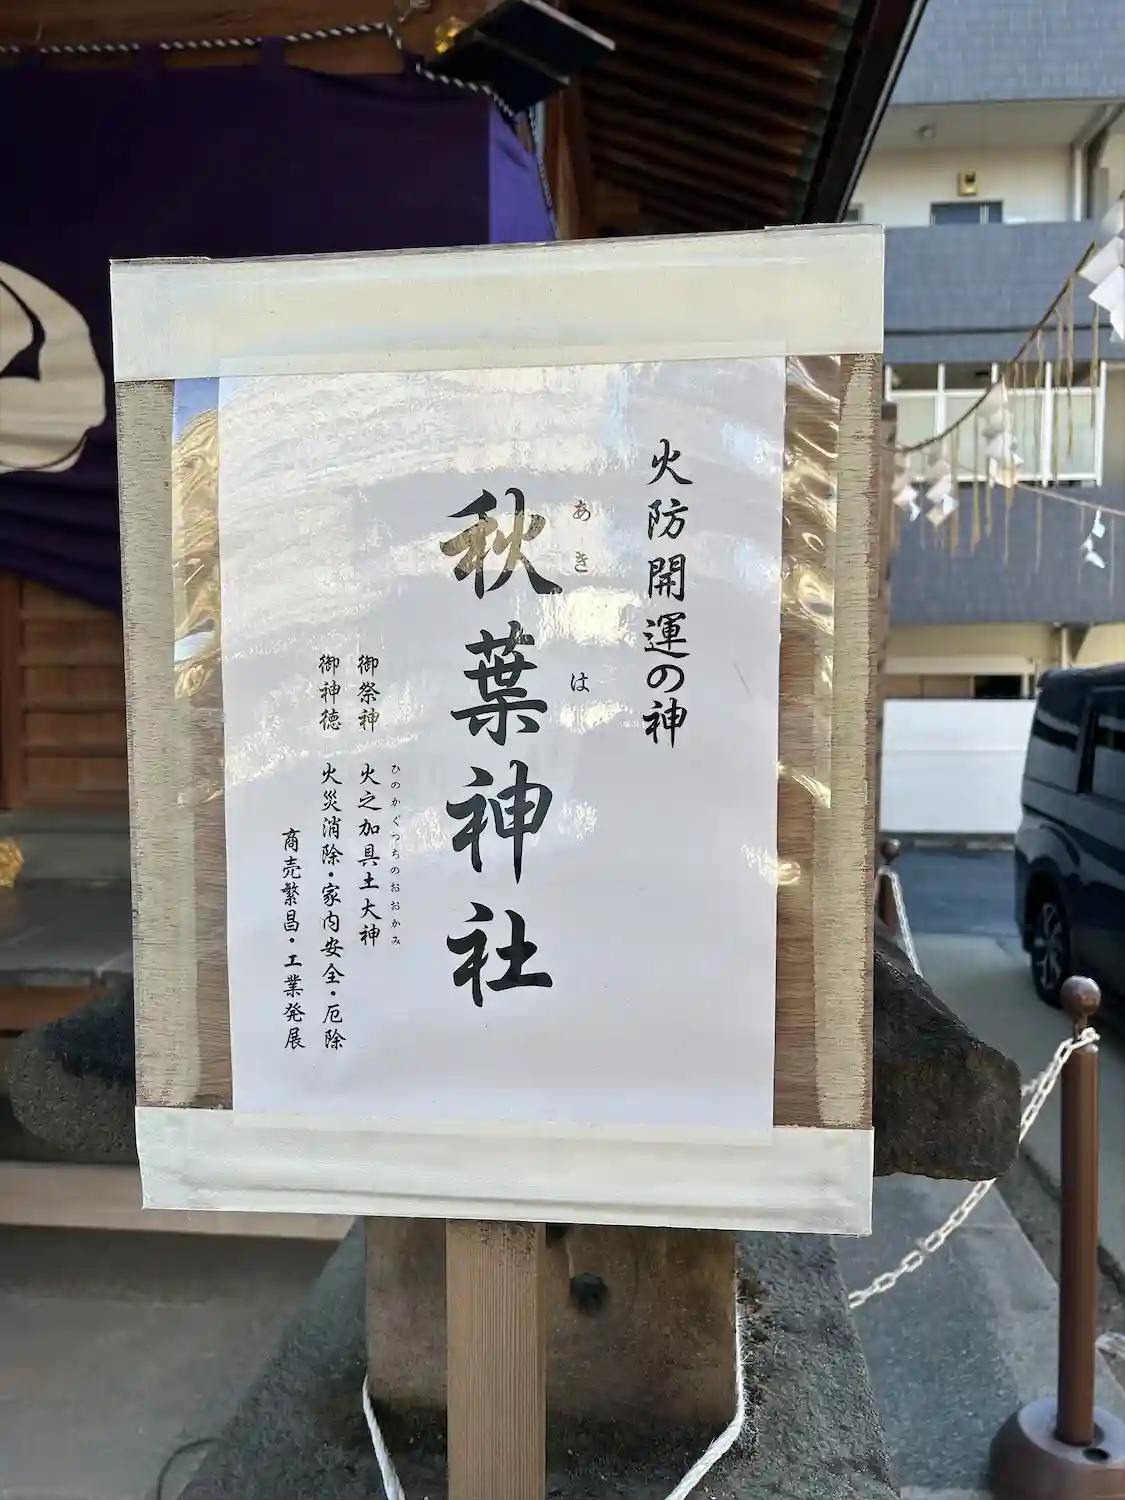 火防開運の神
あきは
秋葉神社
ひのかぐつちのおおかみ
御祭神 火之加具土大神
御神徳 火災消除・家内安全・厄除
商売繁昌・工業発展